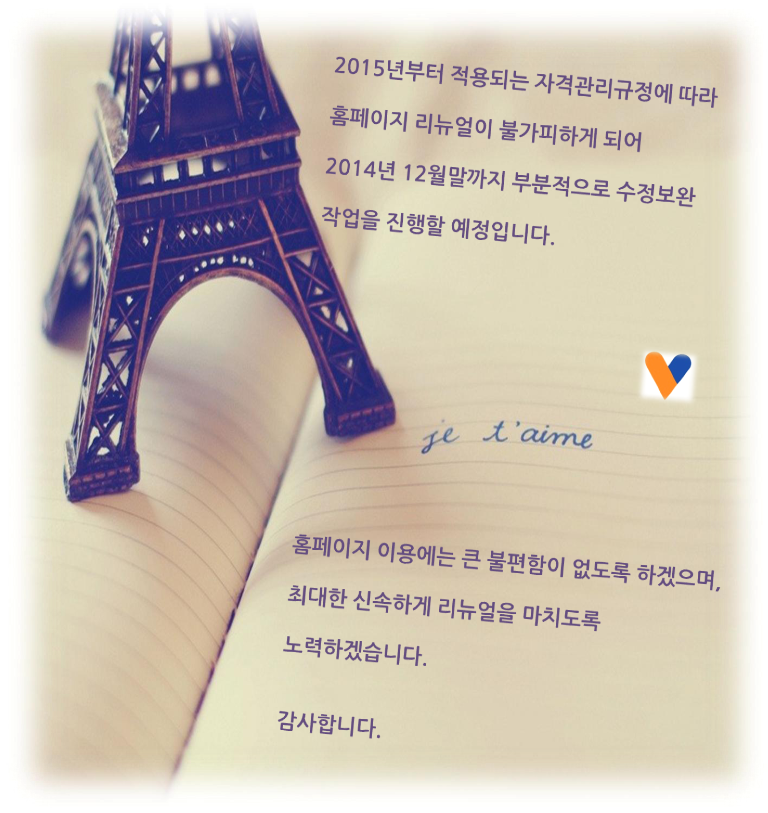 2015년부터 적용되는 자격관리규정에 따라
홈페이지 리뉴얼이 불가피하게 되어
2014년 12월말까지 부분적으로 수정보완
작업을 진행할 예정입니다.
je t'aime
홈페이지 이용에는 큰 불편함이 없도록 하겠으며,
최대한 신속하게 리뉴얼을 마치도록
노력하겠습니다.
감사합니다.